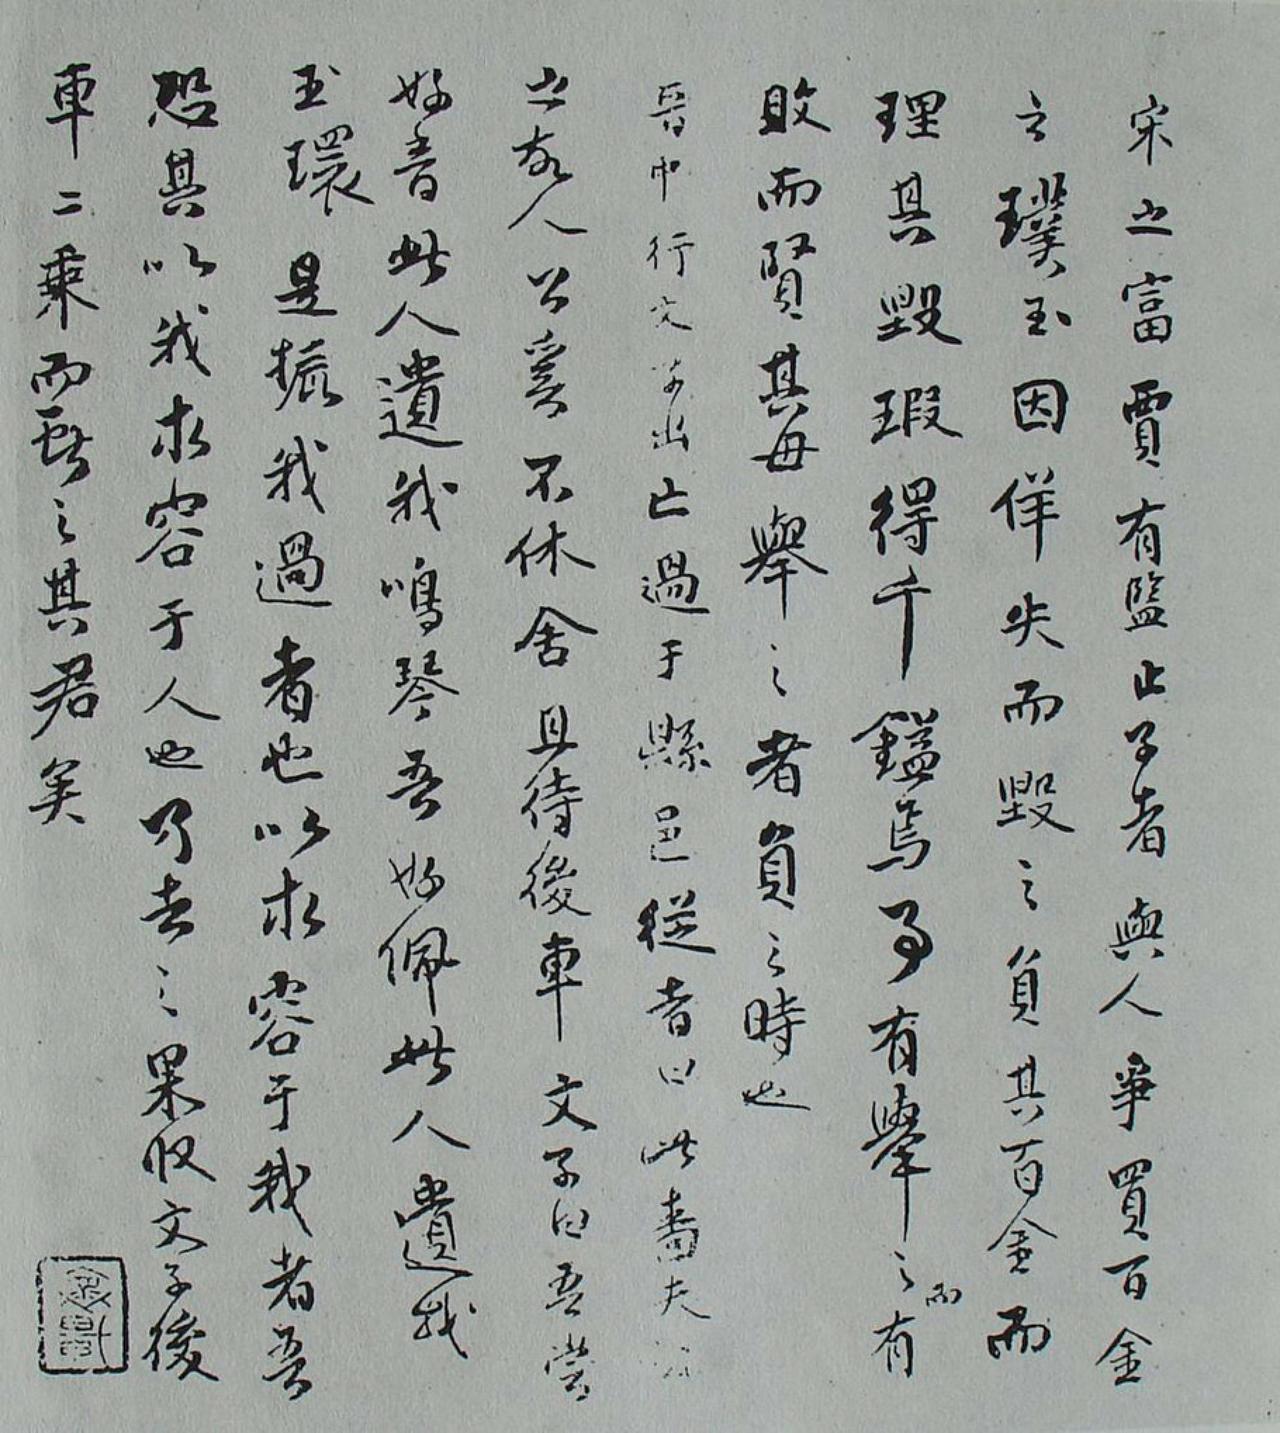 宋之富賈有監止子者與人爭買百金
之璞玉因佯失而毀之負其百金而
理其毀瑕得千鎰焉事有舉之而有
敗而賢其毋舉之者負之時也
晉中行文子出亡過于縣邑從者曰此嗇夫公
之故人公奚不休舍且待後車文子曰吾嘗
好音此人遺我鳴琴吾好佩此人遺我
玉環是振我過者也以求容于我者吾
恐其以我求容于人也乃去之果收文子後
車二乘而獻之其君矣